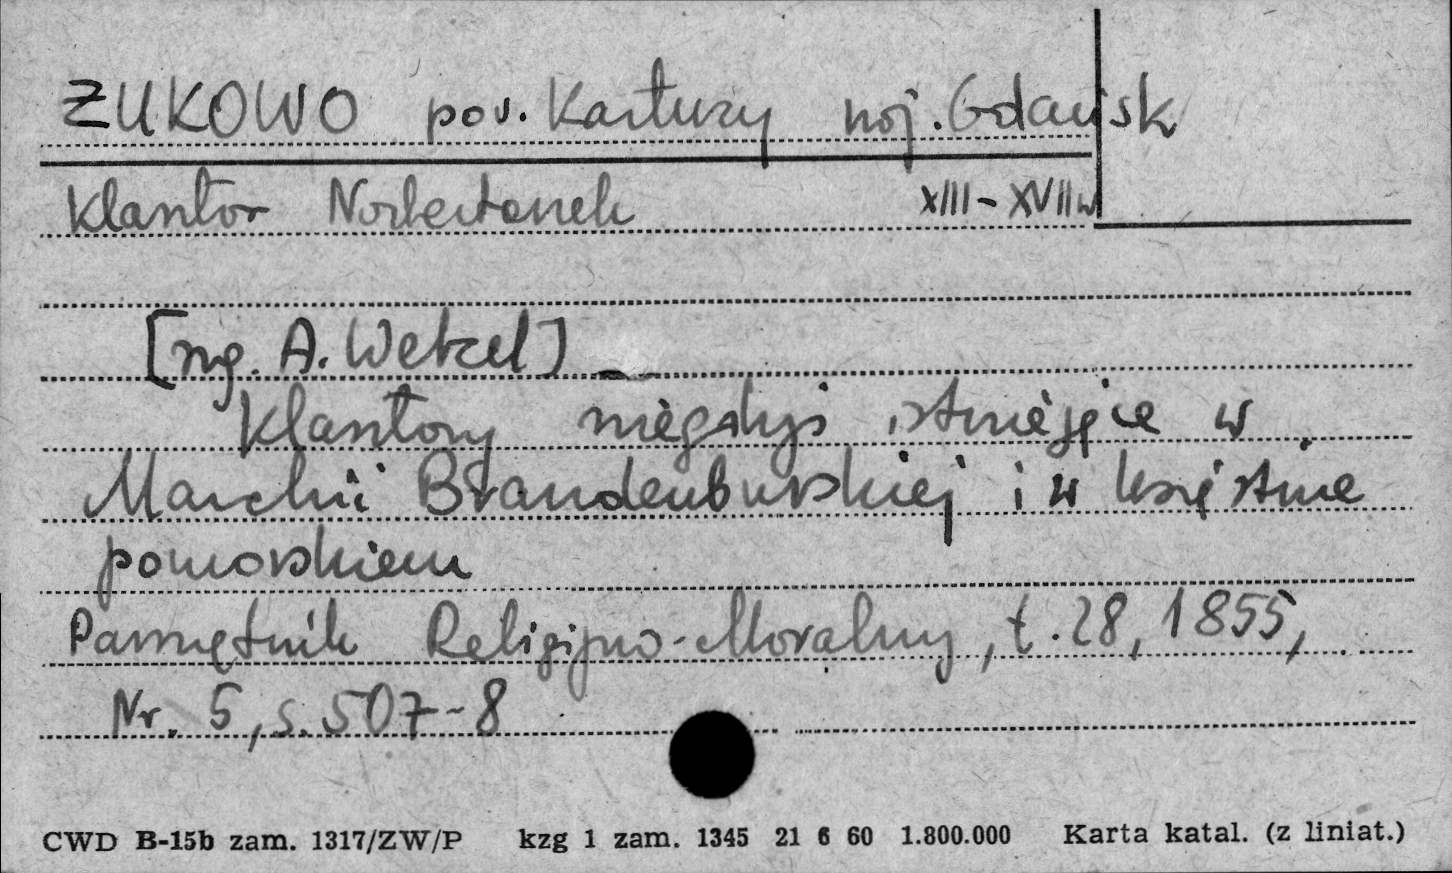 ŻUKOWO pow. Kartuzy woj. Gdańsk
Klasztor Norbertanek XIII-XVII w
[wg. A. Wetzel]
Klasztory niegdyś istniejące w
Marchii Brandenburskiej i w księstwie
pomorskiem
Pamiętnik Religijno-Moralny, t. 28, 1855,
Nr. 5, s. 507-8
CWD B-15b zam. 1317/ZW/P kzg 1 zam. 1345 21 6 60 1.800.000 Karta katal. (z liniat.)